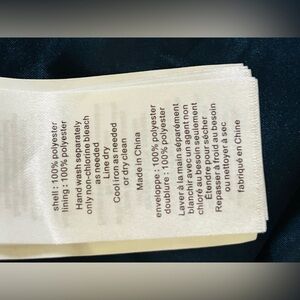 shell : 100% polyester
lining : 100% polyester
Hand wash separately
only non-chlorine bleach
as needed
Line dry
Cool iron as needed
or dry clean
Made in China
enveloppe : 100% polyester
doublure : 100% polyester
Laver à la main séparément
blanchir avec un agent non
chloré au besoin seulement
Étendre pour sécher
Repasser à froid au besoin
ou nettoyer à sec
fabriqué en Chine